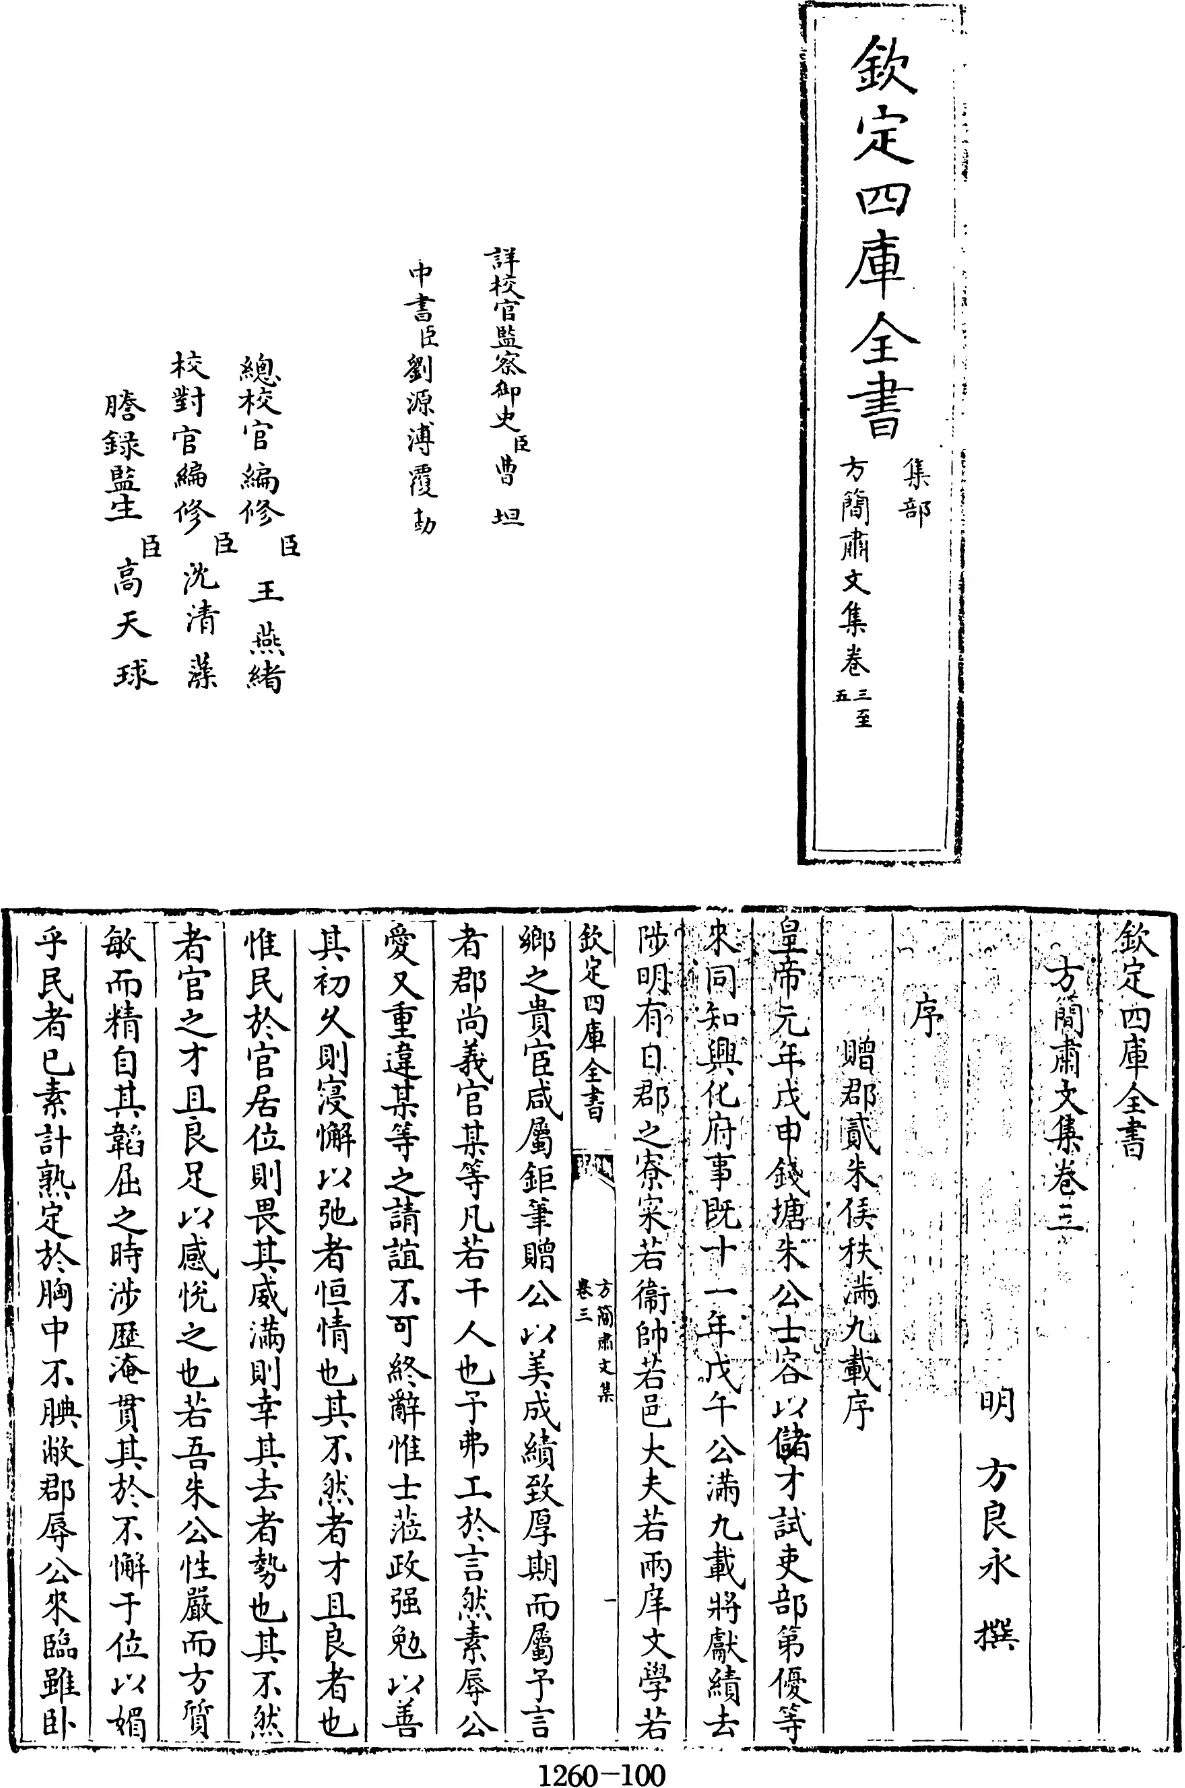 欽定四庫全書
集部
方簡肅文集卷三至五
詳校官監察御史臣曹坦
中書臣劉源溥覆勘
總校官編修臣王燕緒
校對官編修臣沈清藻
謄錄監生臣高天球
欽定四庫全書
方簡肅文集卷三
明 方良永 撰
序
贈郡貳朱侯秩滿九載序
皇帝元年戊申錢塘朱公士容以儲才試吏部第優等
來同知興化府事既十一年戊午公滿九載將獻績去
陟明有日郡之寮寀若衞帥若邑大夫若兩庠文學若
欽定四庫全書
方簡肅文集
卷三
一
鄉之貴宦咸屬鉅筆贈公以美成績致厚期而屬予言
者郡尚義官某等凡若干人也予弗工於言然素辱公
愛又重違某等之請誼不可終辭惟士蒞政强勉以善
其初久則寖懈以弛者恒情也其不然者才且良者也
惟民於官居位則畏其威滿則幸其去者勢也其不然
者官之才且良足以感悅之也若吾朱公性嚴而方質
敏而精自其韜屈之時涉歷淹貫其於不懈于位以媚
乎民者已素計熟定於胸中不腆敝郡辱公來臨雖卧
1260-100